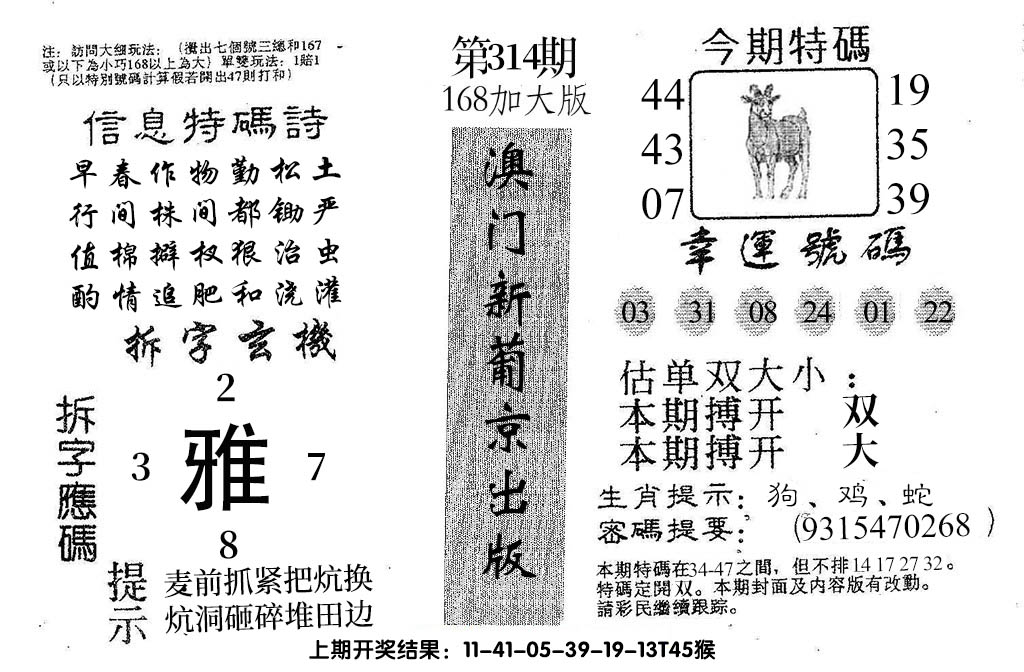 注：訪問大細玩法：（攪出七個號三總和167
或以下為小巧168以上為大）單雙玩法：1賠1
（只以特別號碼計算假若開出47則打和）
信息特碼詩
早春作物勤松土
行间株间都锄严
值棉擗杈狠治虫
酌情追肥和浇灌
拆字玄機
拆字應碼
2
3 雅 7
8
提示
麦前抓紧把炕换
炕洞砸碎堆田边
第314期
168加大版
澳门新葡京出版
今期特碼
44 19
43 35
07 39
幸運號碼
03 31 08 24 01 22
估单双大小：
本期搏开 双
本期搏开 大
生肖提示：狗、鸡、蛇
密碼提要：（9315470268）
本期特碼在34-47之間，但不排14 17 27 32。
特碼定開双。本期封面及内容版有改動。
請彩民繼續跟踪。
上期开奖结果：11-41-05-39-19-13T45猴